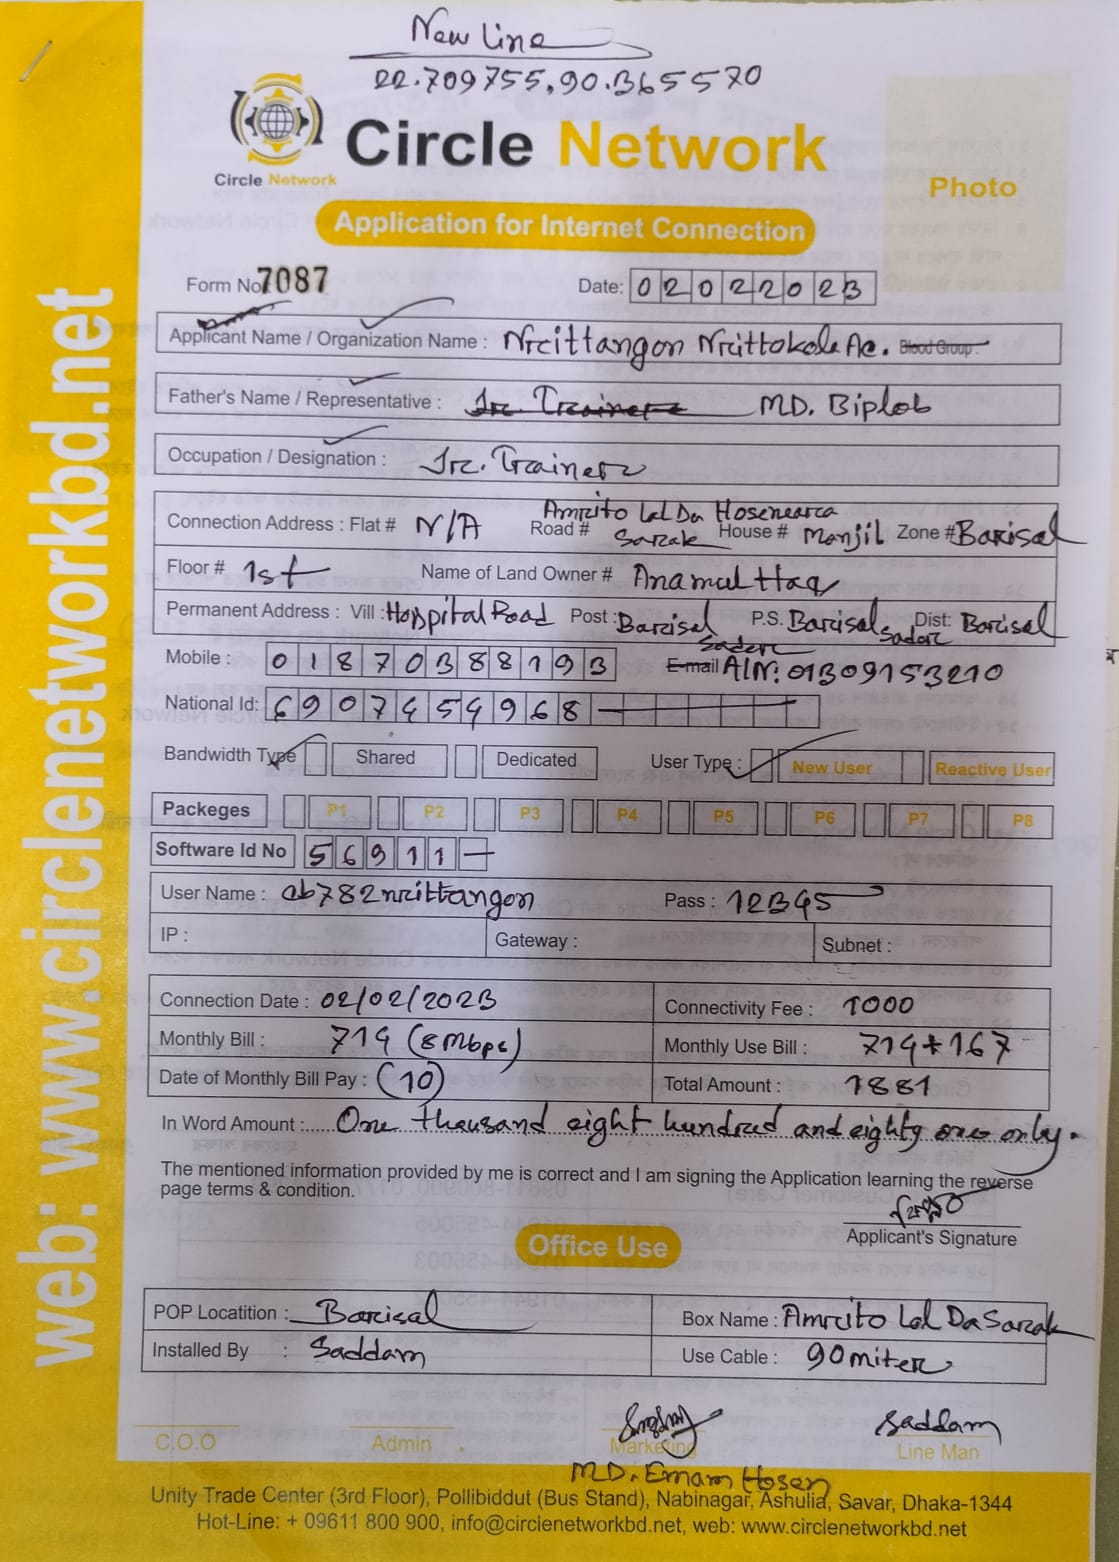 New Line
22.709755,90.365570
Circle Network
Circle Network
Photo
Application for Internet Connection
Form No: 7087
Date: 02022023
Applicant Name / Organization Name : Nrittangon Nrittokola Ac. Blood Group :
Father's Name / Representative : Sr. Trainer MD. Biplob
Occupation / Designation : Sr. Trainer
Connection Address : Flat # N/A Road # Amrito Lal Da Sarak House # Hoseneara Manjil Zone # Barisal
Floor # 1st Name of Land Owner # Anamul Haq
Permanent Address : Vill : Hospital Road Post : Barisal Sadar P.S. Barisal Sadar Dist: Barisal
Mobile : 01870388193 E-mail AlN: 01309153210
National Id: 6907454968
Bandwidth Type Shared Dedicated User Type : New User Reactive User
Packeges P1 P2 P3 P4 P5 P6 P7 P8
Software Id No 56911
User Name : ab782nrittangon Pass : 12345
IP : Gateway : Subnet :
Connection Date : 02/02/2023 Connectivity Fee : 1000
Monthly Bill : 714 (8Mbps) Monthly Use Bill : 714+167
Date of Monthly Bill Pay : (10) Total Amount : 1881
In Word Amount : One thousand eight hundred and eighty one only.
The mentioned information provided by me is correct and I am signing the Application learning the reverse
page terms & condition.
Applicant's Signature
Office Use
POP Locatition : Barisal Box Name : Amrito Lal Da Sarak
Installed By : Saddam Use Cable : 90 miter
Saddam
C.O.O Admin Marketing Line Man
MD. Emam Hosen
Unity Trade Center (3rd Floor), Pollibiddut (Bus Stand), Nabinagar, Ashulia, Savar, Dhaka-1344
Hot-Line: + 09611 800 900, info@circlenetworkbd.net, web: www.circlenetworkbd.net
web: www.circlenetworkbd.net